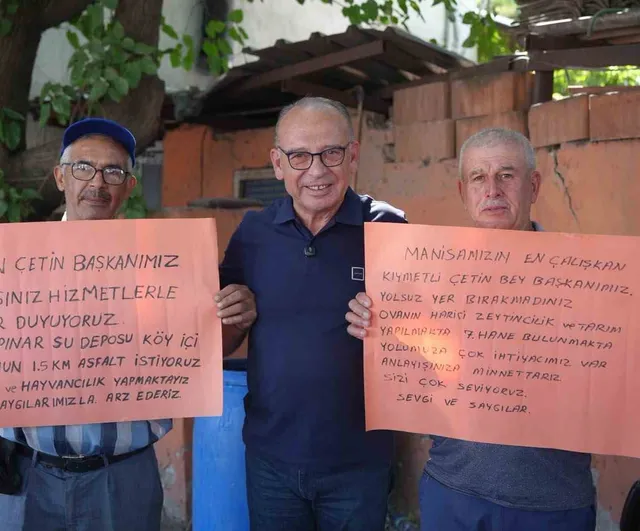 N ÇETİN BAŞKANIMIZ
SINIZ HİZMETLERLE
R DUYUYORUZ
PINAR SU DEPOSU KÖY İÇİ
NUN 1.5 KM ASFALT İSTİYORUZ
VE HAYVANCILIK YAPMAKTAYIZ
SAYGILARIMIZLA. ARZ EDERİZ.
MANİSAMIZIN EN ÇALIŞKAN
KIYMETLİ ÇETİN BEY BAŞKANIMIZ.
YOLSUZ YER BIRAKMADINIZ
OVANIN HARİÇİ ZEYTİNCİLİK VE TARIM
YAPILMAKTA 7. HANE BULUNMAKTA
YOLUMUZA ÇOK İHTİYACIMIZ VAR
ANLAYIŞINIZA MİNNETTARIZ.
SİZİ ÇOK SEVİYORUZ.
SEVGİ VE SAYGILAR.